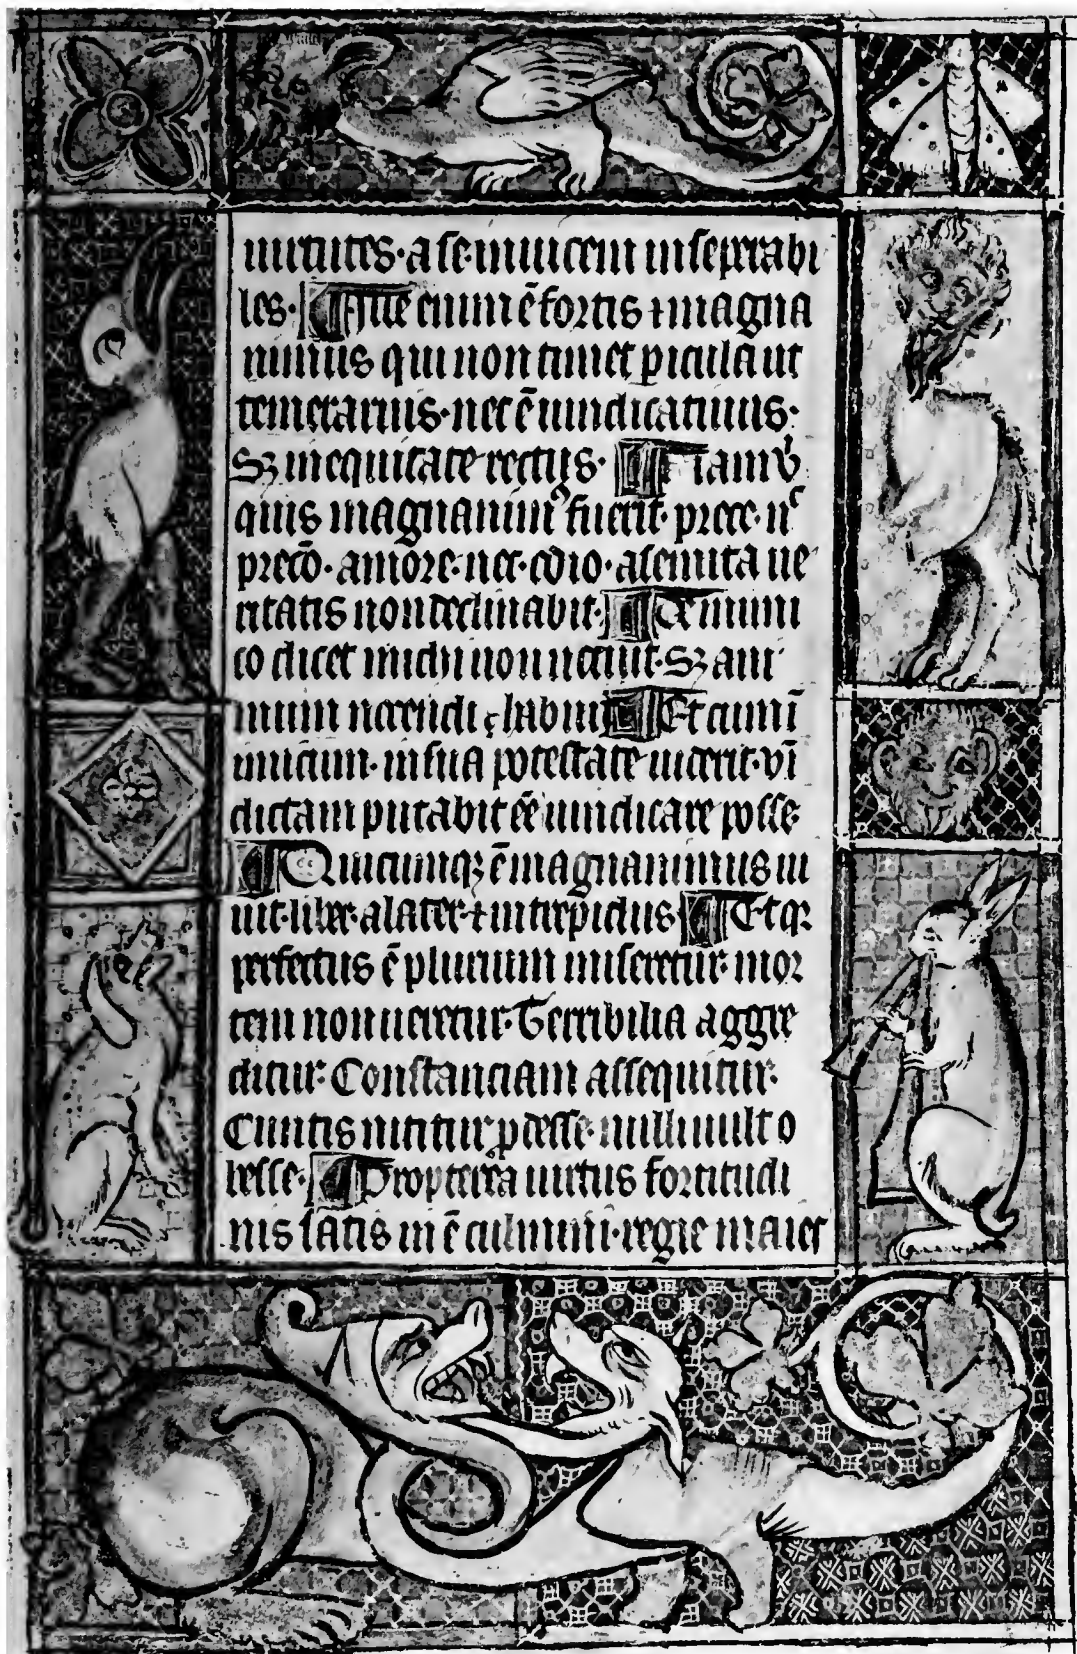 uirtutes · a se inuicem inseperabi
les · Nã e enim ē fortis ⁊ magna
nimus qui non timet ꝑicula ut
temerarius · nec ē uindicatiuus ·
Sꝫ in equitate rectus · Nam ẜ
quis magnanimꝰ fuerit · prece · nͨ
precō · amore · nec · odio · a semita ue
ritatis non declinabit · Et inimi
co dicet michi non nocuit · Sꝫ ani
mum nocendi habuit Et cum ī
imicum · in sua potestate uicerit · vī
dictam putabit ēē uindicare posse
Quicumqꝫ ē magnanimus ui
uit · liber · alacer · ⁊ intrepidus Et qꝛ
perfectus ē plurium miseretur · mor
tem non ueretur · Terribilia aggre
ditur · Constanciam assequitur ·
Cuntis nititur ꝓdesse · nulli uult o
besse · Propterea uirtus fortitudi
nis satis in ē culmini · regie maies